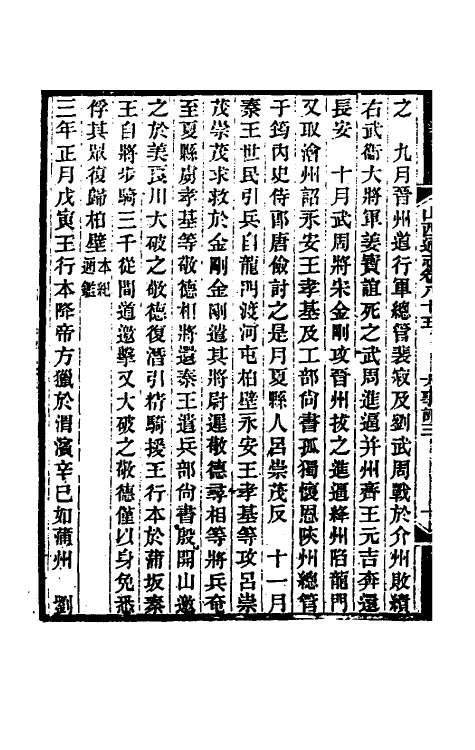 之　九月晉州道行軍總管裴寂及劉武周戰於介州敗績
右武衛大將軍姜寶誼死之武周進逼并州齊王元吉奔還
長安　十月武周將宋金剛攻晉州拔之進逼絳州陷龍門
又取澮州詔永安王孝基及工部尚書孤獨懷恩陜州總管
于筠內史侍郎唐儉討之是月夏縣人呂崇茂反　十一月
秦王世民引兵自龍門渡河屯柏壁永安王孝基等攻呂崇
茂崇茂求救於金剛金剛遣其將尉遲敬德尋相等將兵奄
至夏縣虜孝基等敬德相將還秦王遣兵部尚書殷開山邀
之於美良川大破之敬德復潛引精騎援王行本於蒲坂秦
王自將步騎三千從間道邀擊又大破之敬德僅以身免悉
俘其眾復歸柏壁本紀通鑑
三年正月戊寅王行本降帝方獵於渭濱辛巳如蒲州　劉
山西通志卷八十五　大事記三